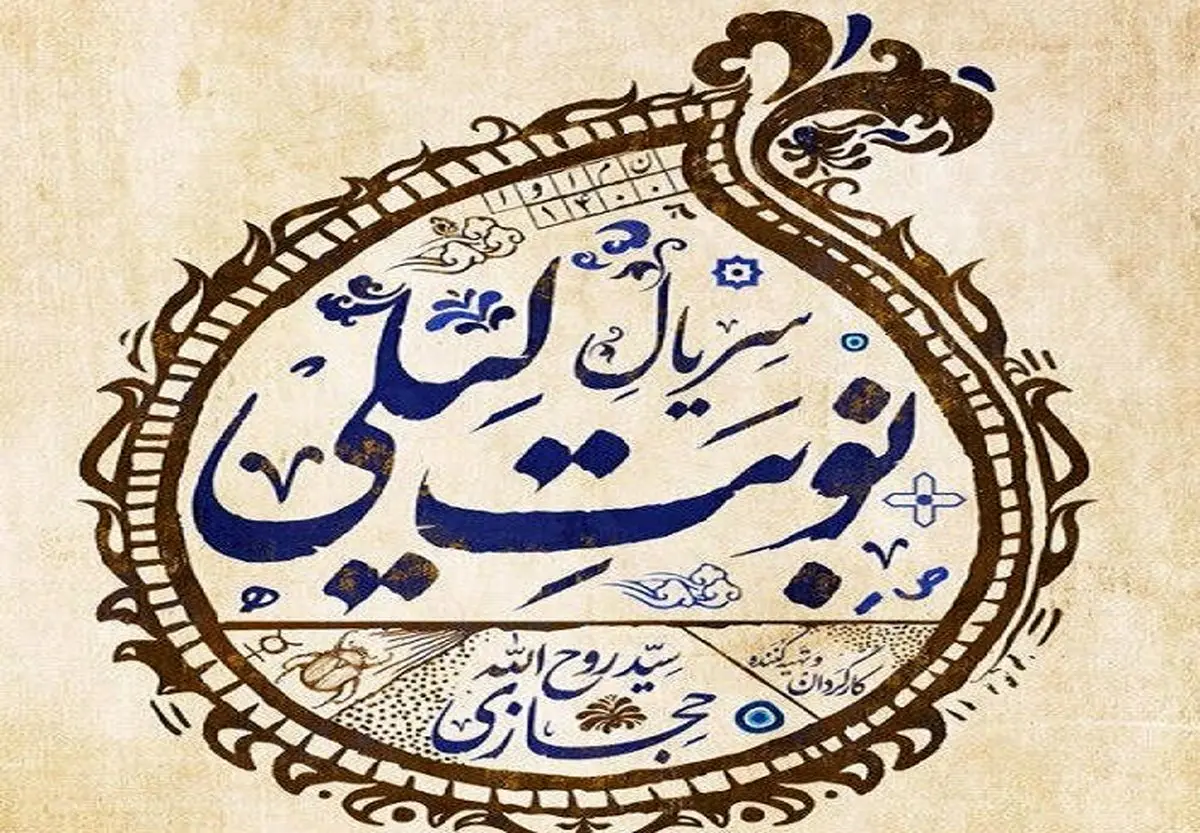 ن م ا و ا
۱۴۰۰
سریالِ
نوبتِ لِیلی
کارگردان
و تهیه‌کننده
سیّد روح الله
حجازی